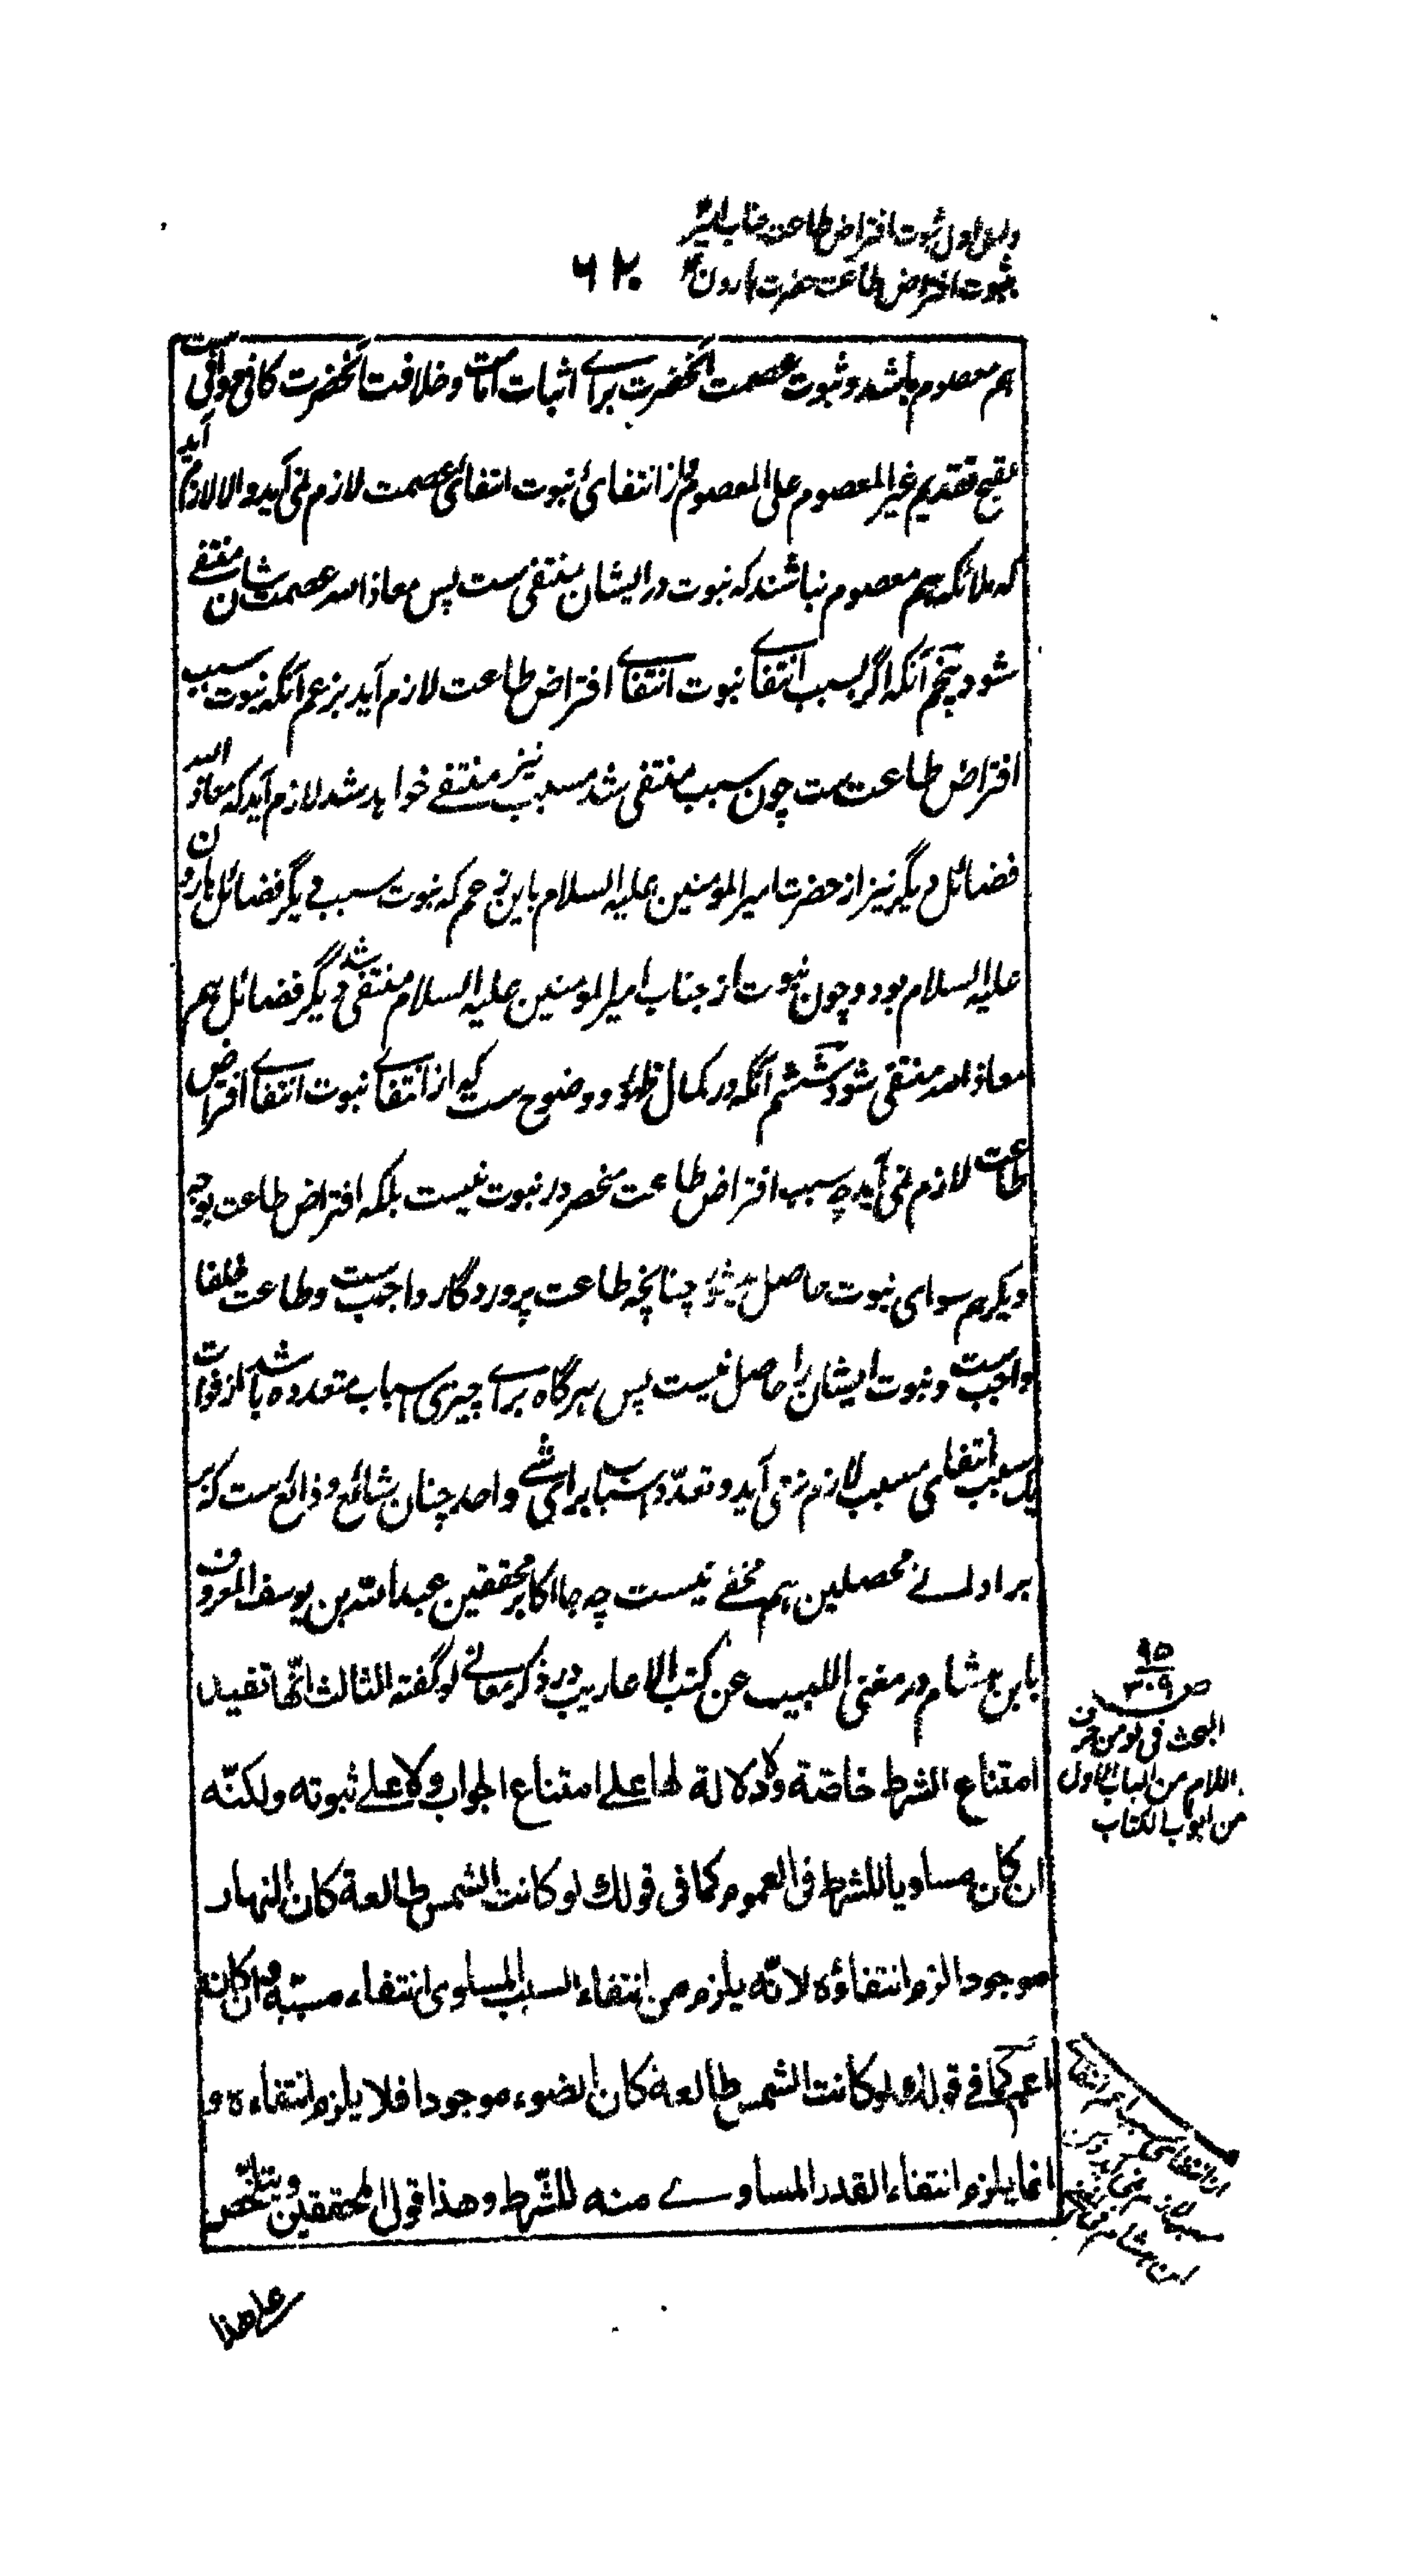 دلیل اول ثبوت افتراض طاعت جناب امیر
بثبوت افتراض طاعت حضرت هارون
۶۲۰
هم معصوم باشد و ثبوت عصمت آنحضرت برای اثبات امامت و خلافت آنحضرت کافی و وافی ست
لقبح تقدیم غیر المعصوم علی المعصوم و از انتفائ نبوت انتفائ عصمت لازم نمی آید و الا لازم آید
که ملائکه هم معصوم نباشند که نبوت در ایشان منتفی ست پس معاذ الله عصمت شان منتفے
شود پنجم آنکه اگر بسبب انتفاے نبوت انتفاے افتراض طاعت لازم آید بزعم آنکه نبوت سبب
افتراض طاعت ست چون سبب منتفی شد مسبب نیز منتفے خواهد شد لازم آید که معاذ الله
فضائل دیگر نیز از حضرت امیر المومنین علیه السلام باین زعم که نبوت سبب دیگر فضائل هارون
علیه السلام بود و چون نبوت از جناب امیر المومنین علیه السلام منتفی شد دیگر فضائل هم
معاذ الله منتفی شود ششم آنکه در کمال ظهور و وضوح ست که از انتفاے نبوت انتفاے افتراض
طاعت لازم نمی آید چه سبب افتراض طاعت منحصر در نبوت نیست بلکه افتراض طاعت بوجه
دیگر هم سوای نبوت حاصل میشود چنانچه طاعت پروردگار واجب ست و طاعت خلفا
واجب ست و نبوت ایشان را حاصل نیست پس هرگاه برای چیزی اسباب متعدده باشد از فوات
یک سبب انتفای مسبب لازم نمی آید و تعدّد اسباب برای شے واحد چنان شائع و ذائع ست که
بر ادانے محصلین هم مخفے نیست چه جا اکابر محققین عبد الله بن یوسف المعروف
بابن هشام در مغنی اللبیب عن کتب الاعاریب در ذکر معانے لو گفته الثالث انّها تفید
امتناع الشرط خاصّة ولا دلالة لها علے امتناع الجواب ولا علے ثبوته ولکنّه
ان کان مساویا للشرط فی العموم کما فی قولك لو کانت الشمس طالعة کان النهار
موجودا لزم انتفاؤه لانّه یلزم من انتفاء السبب المساوی انتفاء مسبّبه وان کان
اعم کما فے قولك لو کانت الشمس طالعة کان الضوء موجودا فلا یلزم انتفاءه و
انما یلزم انتفاء القدر المساوے منه للشّرط وهذا قول المحققین ویتلخّص
۹۵
ص ۳۰۹
البحث فی لو من حرف
اللام من الباب الاول
من ابواب الکتاب
علی هذا